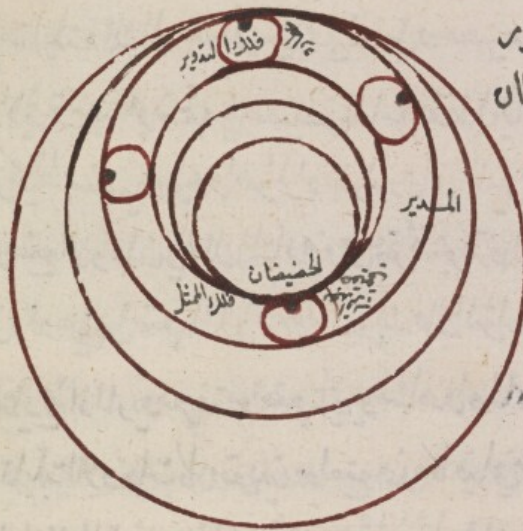 فلك التدوير
المدير
الحضيضان
فلك الممثل
ير
ان